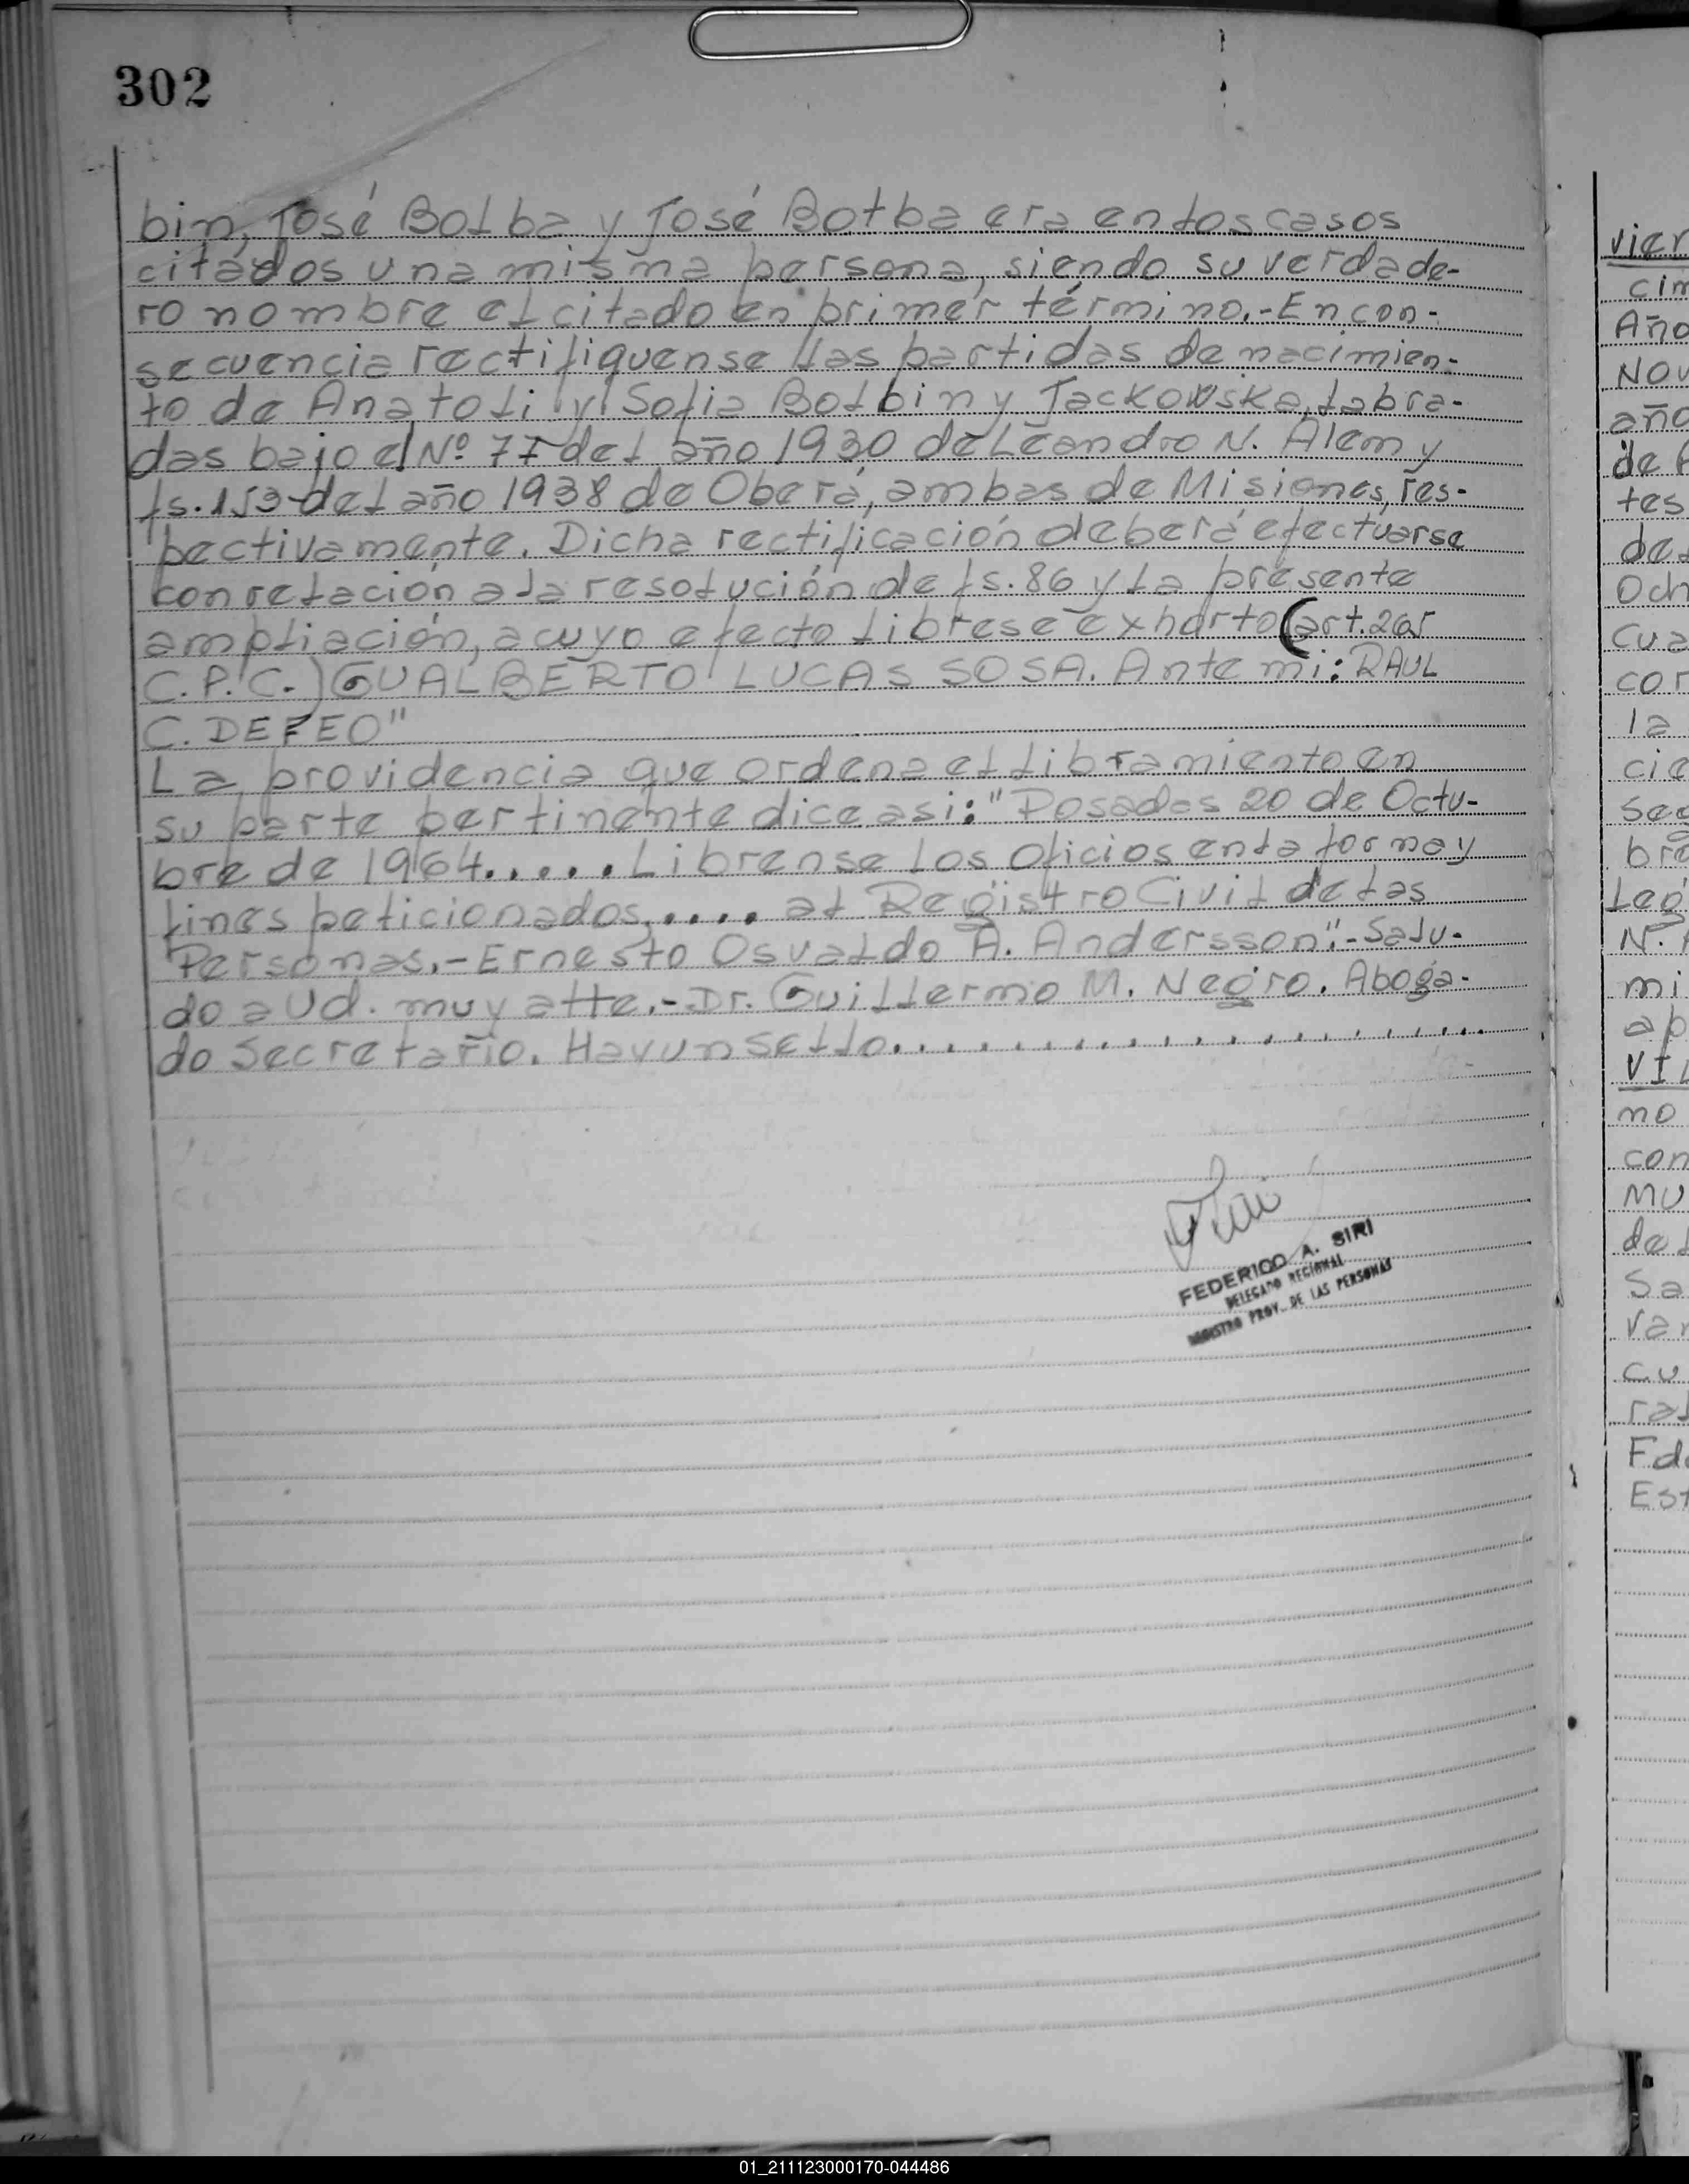 302
bin, José Bolba y José Botba era en los casos
citados una misma persona, siendo su verdade-
ro nombre el citado en primer término.-En con-
secuencia rectifiquense las partidas de nacimien-
to de Anatoli y Sofia Bolbin y Jackowska, labra-
das bajo el Nº 77 del año 1930 de Leandro N. Alem y
fs. 153 del año 1938 de Oberá, ambas de Misiones, res-
pectivamente. Dicha rectificación deberá efectuarse
con relación a la resolución de fs. 86 y la presente
ampliación, a cuyo efecto librese exhorto (art.
C.P.C.) GUALBERTO LUCAS SOSA. Ante mi: RAUL
C. DEFEO"
La providencia que ordena el libramiento en
su parte pertinente dice asi: "Posadas 20 de Octu-
bre de 1964.....Librense los oficios en la forma y
fines peticionados..... al Registro Civil de las
Personas.-Ernesto Osvaldo A. Andersson".-Salu-
do a Ud. muy atte.-Dr. Guillermo M. Negro. Aboga-
do Secretario. Hay un sello....................
FEDERICO A. SIRI
DELEGADO REGIONAL
REGISTRO PROV. DE LAS PERSONAS
vier
cim
Año
Nov
año
de
tes
del
Och
cua
cor
la
cie
seg
bre
Leg
N.
mi
ap
VIL
no
con
mu
del
Sa
var
cu
ral
Fdo
Est
01_211123000170-044486